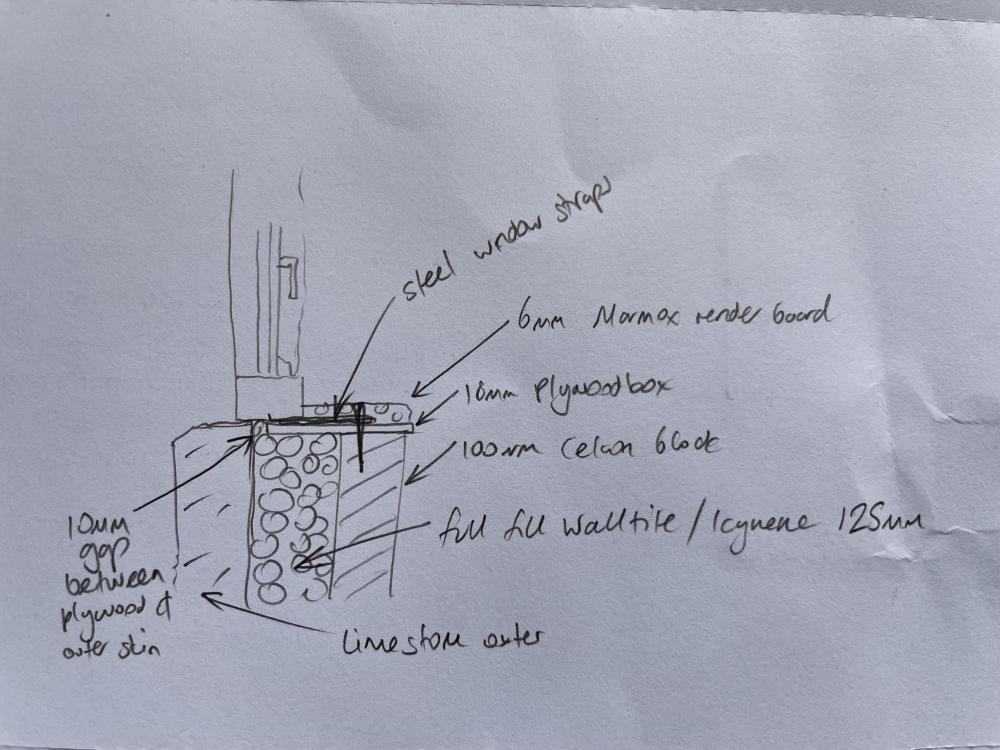 steel window straps
6mm Marmox render board
18mm Plywood box
100mm Celcon block
full fill Walltite / Icynene 125mm
10mm
gap
between
plywood &
outer skin
limestone outer